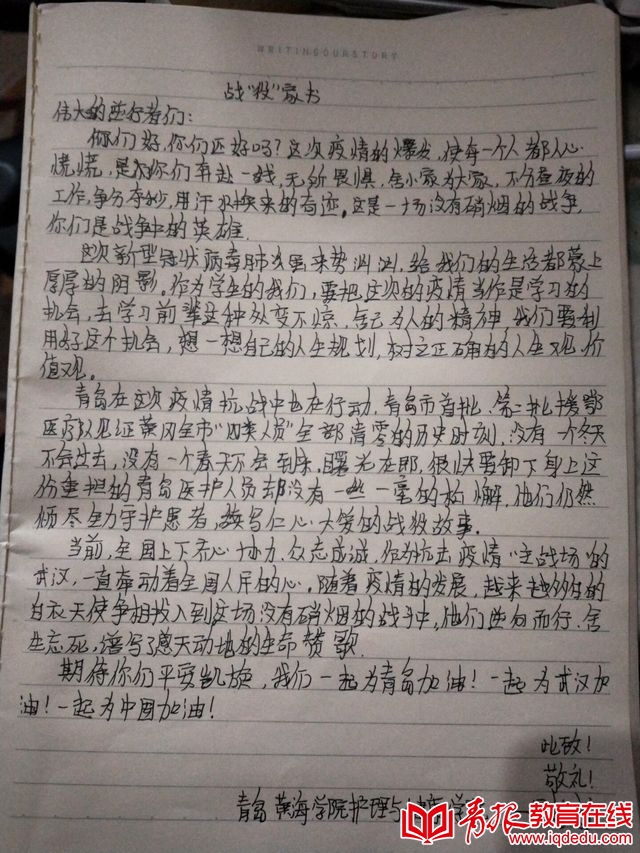 WRITINGOURSTORY
战“役”家书
伟大的逆行者们:
你们好,你们还好吗?这次疫情的爆发,使每一个人都人心
惶惶,是你们奔赴一线,无所畏惧,舍小家为大家,不分昼夜的
工作,争分夺秒,用汗水换来的奇迹。这是一场没有硝烟的战争,
你们是战争中的英雄.
这次新型冠状病毒肺炎来势汹汹,给我们的生活都蒙上
厚厚的阴影。作为学生的我们,要把这次的疫情当作是学习的
机会,去学习前辈这种处变不惊,舍己为人的精神,我们要利
用好这个机会,想一想自己的人生规划,树立正确的人生观,价
值观。
青岛在这次疫情抗战中也在行动,青岛市首批、第二批援鄂
医疗队见证黄冈全市“四类人员”全部清零的历史时刻,没有一个冬天
不会过去,没有一个春天不会到来,曙光在即,很快要卸下身上这
份重担的青岛医护人员却没有一丝一毫的松懈,他们仍然
倾尽全力守护患者,书写仁心大爱的战疫故事。
当前,全国上下齐心协力,众志成城,作为抗击疫情“主战场”的
武汉,一直牵动着全国人民的心。随着疫情的发展,越来越多的
白衣天使争相投入到这场没有硝烟的战争中,他们逆向而行,舍
生忘死,谱写了感天动地的生命赞歌.
期待你们平安凯旋,我们一起为青岛加油!一起为武汉加
油!一起为中国加油!
此致!
敬礼!
青岛黄海学院护理与
青报教育在线
www.iqdedu.com